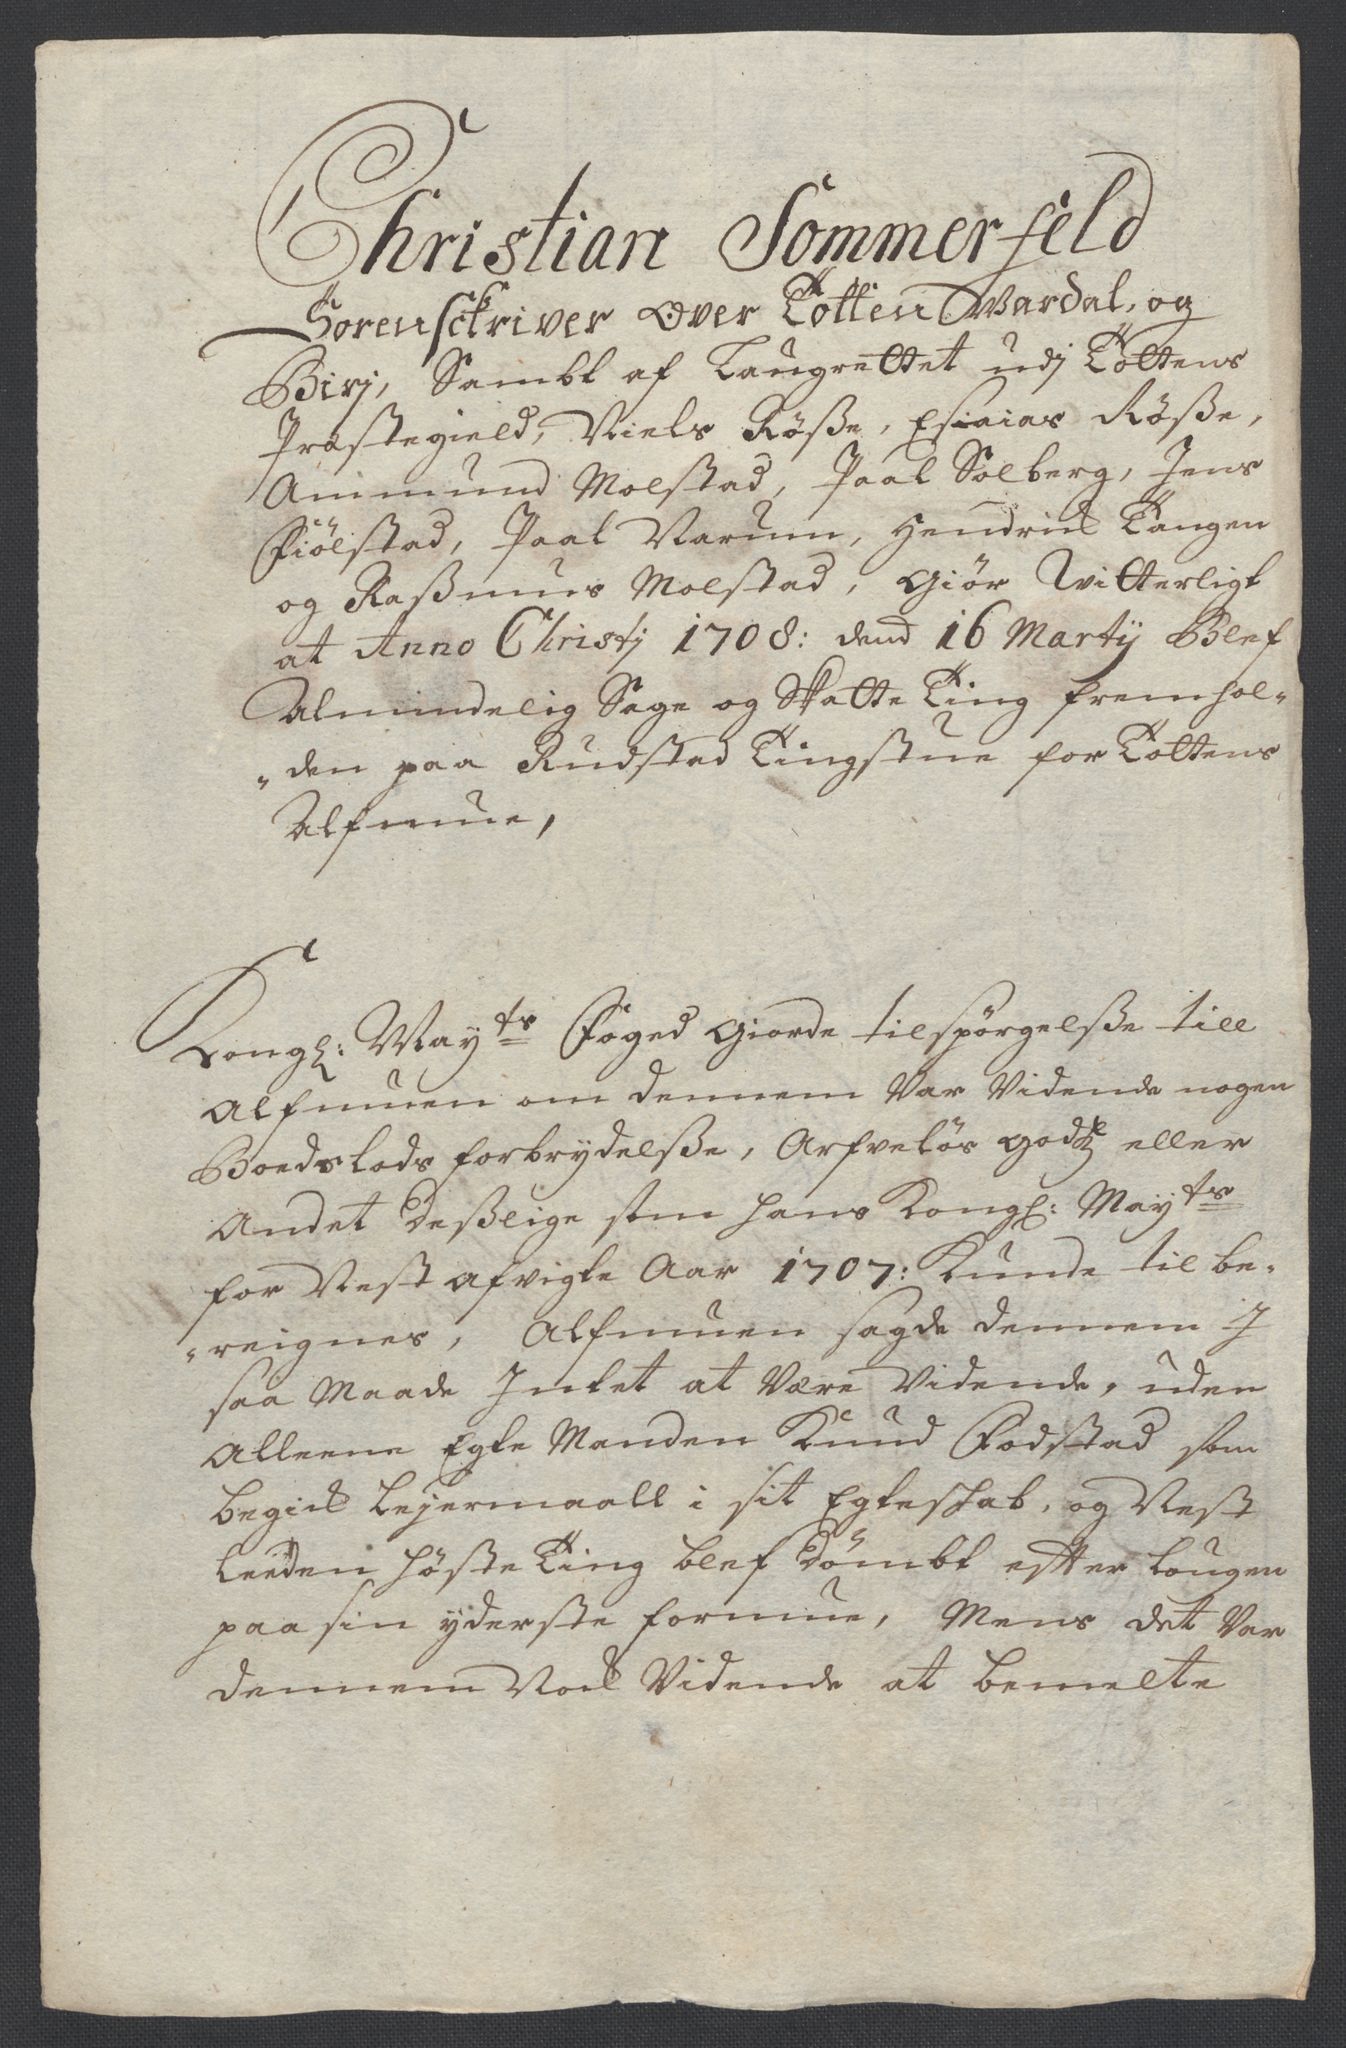 Christian Sommerfeld
Sorensckriver Over Totten Wardal, og
Birj, Sambt af Laugrettet udj Tottens
Præstegield, Niels Røsße, Esaias Røsße,
Ammund Molstad, Paal Solberg, Jens
Fiölstad, Paal Narum, Hendrich Tangen
og Raßmus Molstad, Giör Witterligt
at Anno Christj 1708: dend 16 Martij Blef
Almindelig Sage og Skatte Ting fremhol-
den paa Rudstad Tingstue for Tottens
Almue,
Kongl: Mayts Foged giorde tilspörgelsße till
Almuen om dennem Var Vidende nogen
Boedslods forbrydelsße, Arfveløs godtz eller
Andet deßlige som hans Kongl: Mayts
for Nest afvigte Aar 1707: Kunde til be-
reignes, Almuen sagde dennem J
saa Maade Jntet at Være Vidende, uden
Alleene Egte Manden Knud Fodstad som
begich Lejermaall i sit Egteschab, og Nest
Leeden høste Ting blef Dømbt efter Lougen
paa sin yderste formue, Mens det Var
dennem Noch Vidende at bemelte